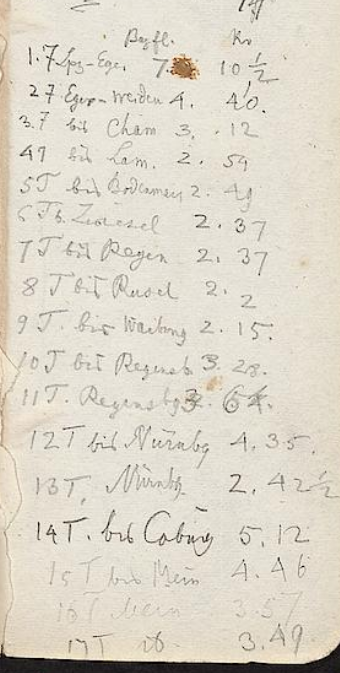 Bayfl. Kr
1. T Lpz-Eger 7. 10 ½
2 T Eger-Weiden 4. 40.
3. T bis Cham 3. 12
4T bis Lam. 2. 59
5T bis Bodenmais 2. 49
6 T b. Zwiesel 2. 37
7 T bis Regen 2. 37
8 T bis Rusel 2. 2
9 T. bis 2. 15.
10 T bis Regensb 3. 28.
11 T. Regensbg 64.
12 T bis Nürnbg 4. 35.
13 T. Nürnbg. 2. 42 ½
14 T. bis Coburg 5. 12
15 T bis Mein 4. 46
16 T Mein 3.57
17 T 3. 49.